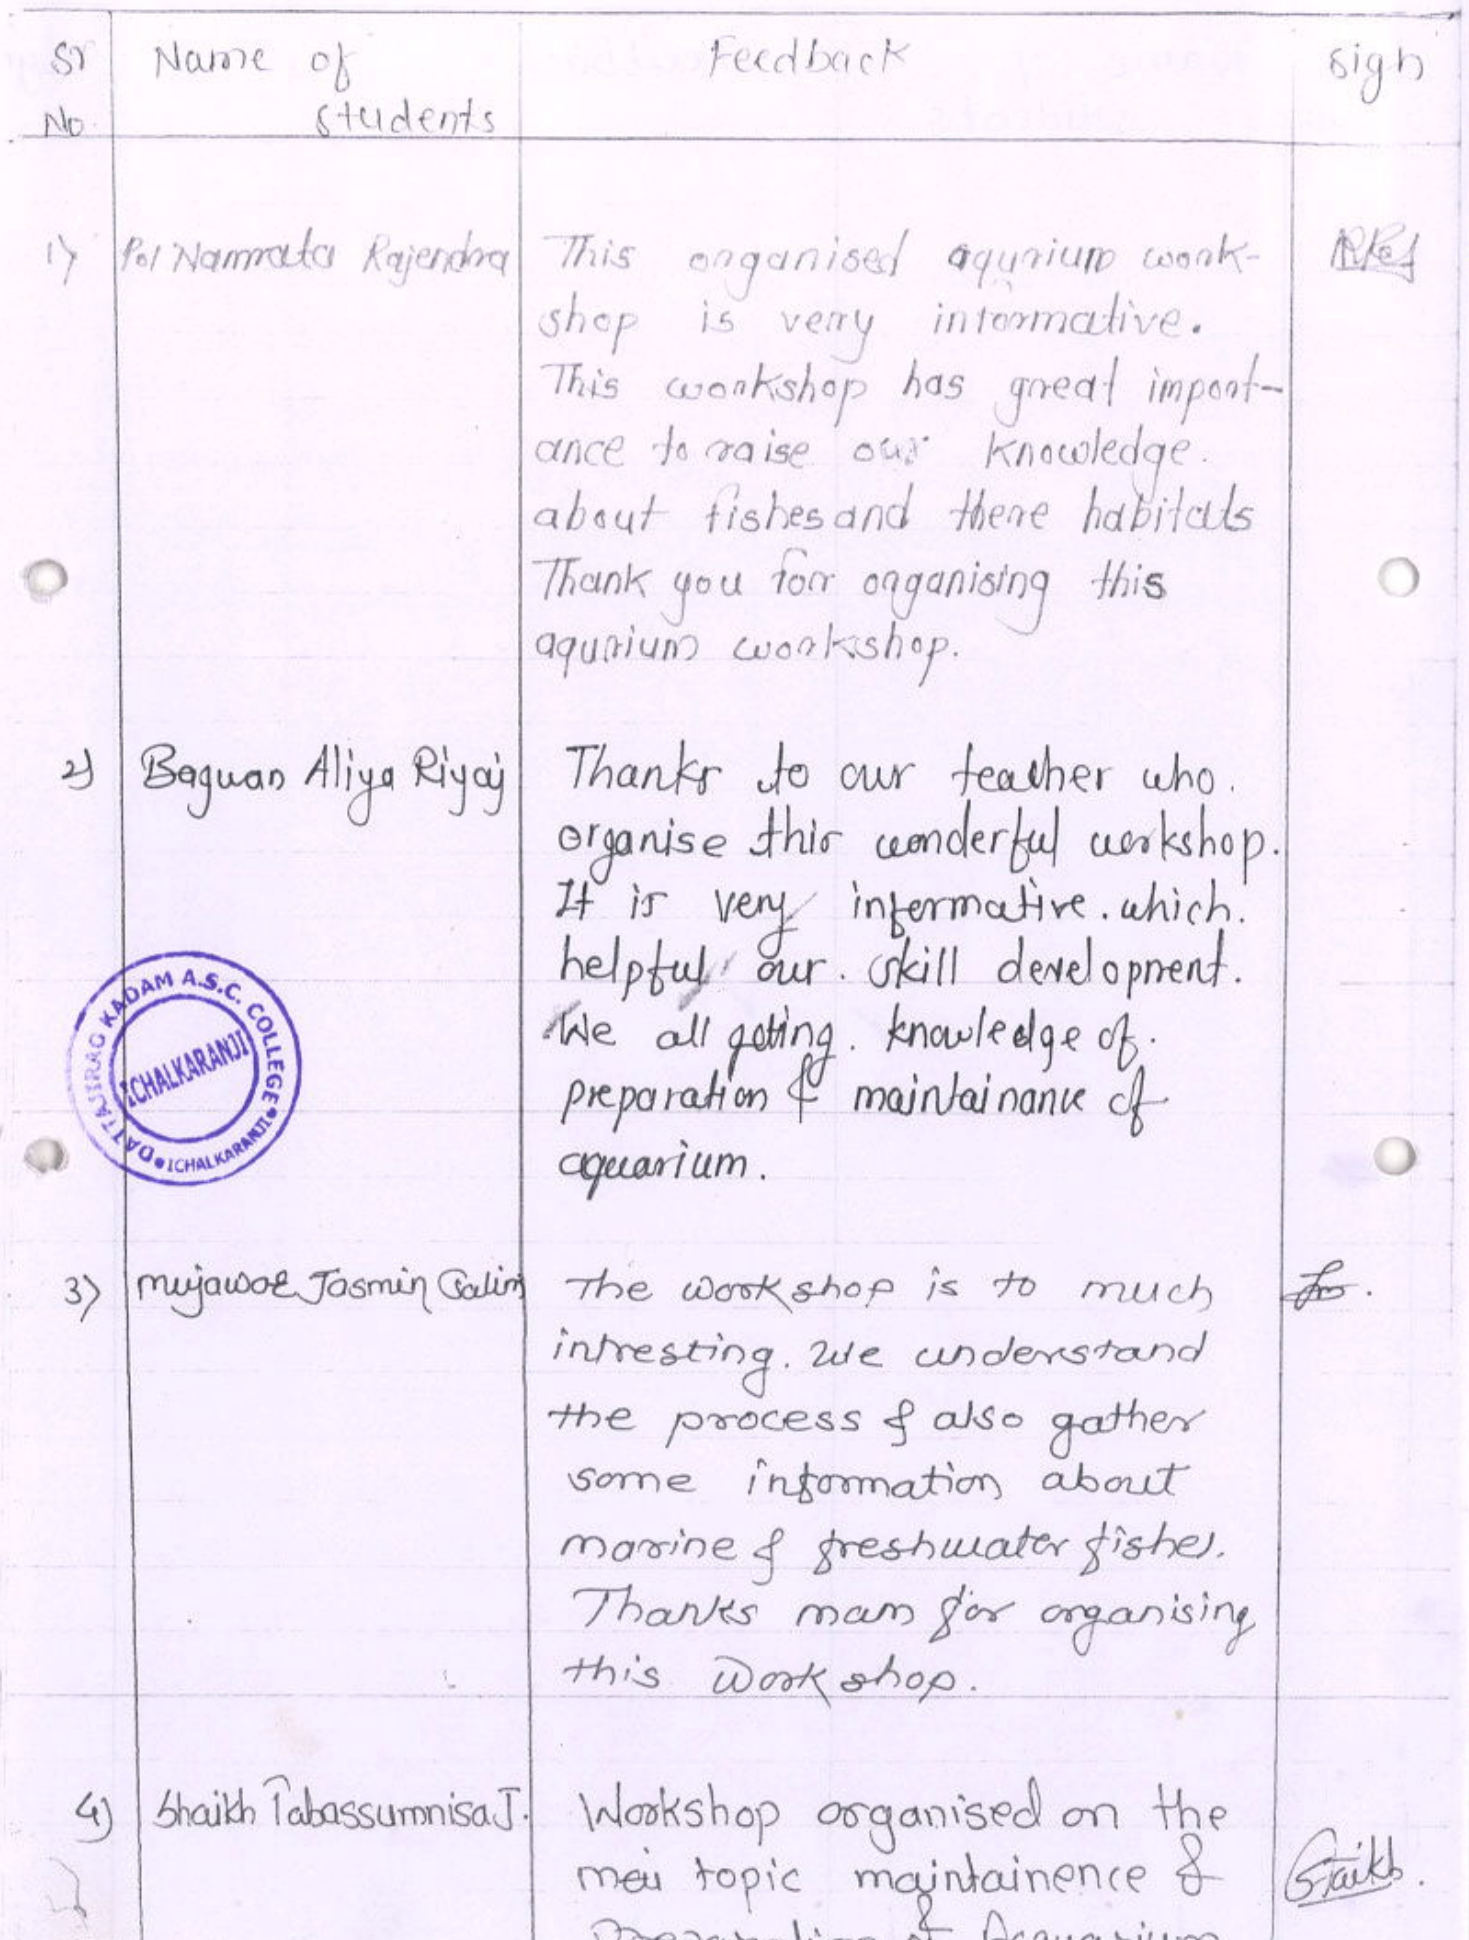 Sr Name of Feedback Sign
No. Students
1) Pol Namrata Rajendra This organised aqurium work-
shop is very informative.
This workshop has great import-
ance to raise our knowledge
about fishes and there habitats
Thank you for organising this
aqurium workshop.
2) Bagwan Aliya Riyaj Thanks to our teacher who.
organise this wonderful workshop.
It is very informative. which.
helpful our. skill development.
We all geting. knowledge of.
preparation & maintainance of
aquarium.
DATTAJIRAO KADAM A.S.C. COLLEGE • ICHALKARANJI •
ICHALKARANJI
3) Mujawar Jasmin Salim The workshop is to much
intresting. We understand
the process & also gather
some information about
marine & freshwater fishes.
Thanks mam for organising
this workshop.
4) Shaikh Tabassumnisa J. Workshop organised on the
topic maintainence &
Preparation of Acquarium